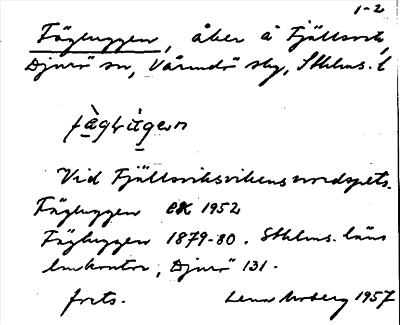 1-2
Fägluggen, åker å Fjällsvik,
Djurö sn, Värmdö skg, Sthlms. l
Vid Fjällsviksvikens nordspets.
Fägluggen ek 1952
Fägluggen 1879-80. Sthlms. läns
lmkontor, Djurö 131.
forts. Lena Moberg 1957